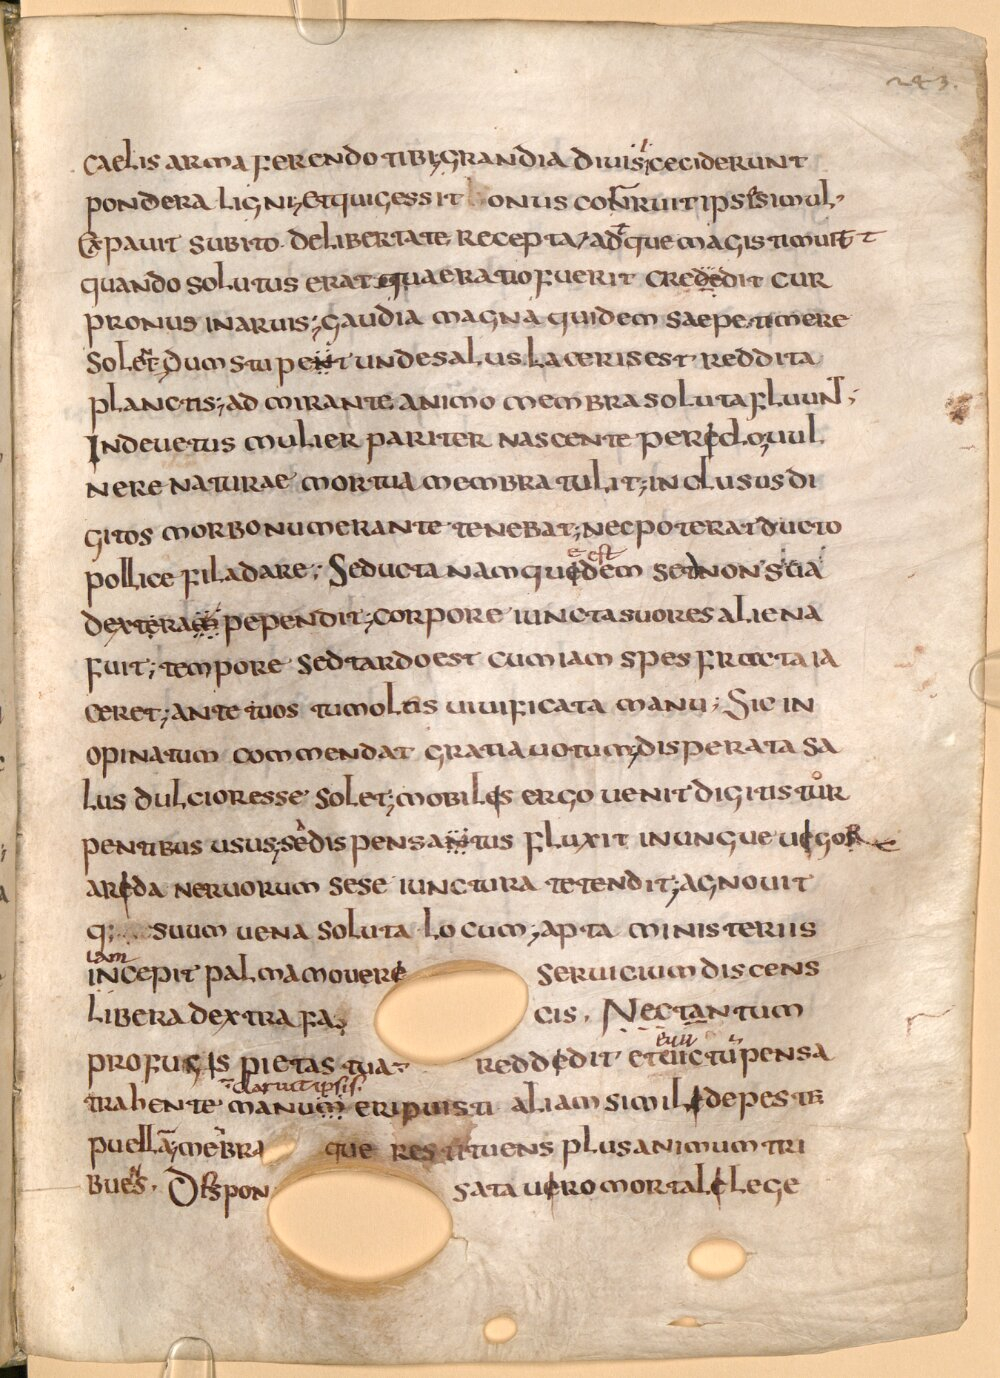 243.
caelis arma ferendo tibi; grandia diuisi; ceciderunt
pondera ligni; et qui gessit onus conruit ipse simul;
expauit subito de libertate recepta; adque magis timuit
quando solutus erat quae ratio fuerit crededit cur
pronus in aruis; gaudia magna quidem saepe timere
solent; dum stupent unde salus laceris est reddita
planctis; admirante animo membra soluta fluunt;
Inde uetus mulier pariter nascente periclo; uul
nere naturae mortua membra tulit; inclusus di
gitos morbo numerante tenebat; nec poterat ducto
pollice fila dare; Seducta namque idem sed non sua
dextera pependit; corpore iuncta suo res aliena
fuit; tempore sed tardo est cum iam spes fructa ia
ceret; ante tuos tumolos uiuificata manu; Sic in
opinatum commendat gratia uotum; disperata sa
lus dulcior esse solet; mobiles ergo uenit digitis tur
pentibus usus; sed dispensantus fluxit in ungue uigor
arida neruorum sese iunctura tetendit; agnouit
q; suum uena soluta locum; apta ministeriis
iam
incepit palma mouere seruicium discens
libera dextra fa cis. Nec tantum
profugis pietas tua reddedit et uictu pensa
claruit ipsis
trahente manum eripuisti aliam simili de peste
puella; membra que restituens plus animum tri
bues. Dispon sata uero mortali lege